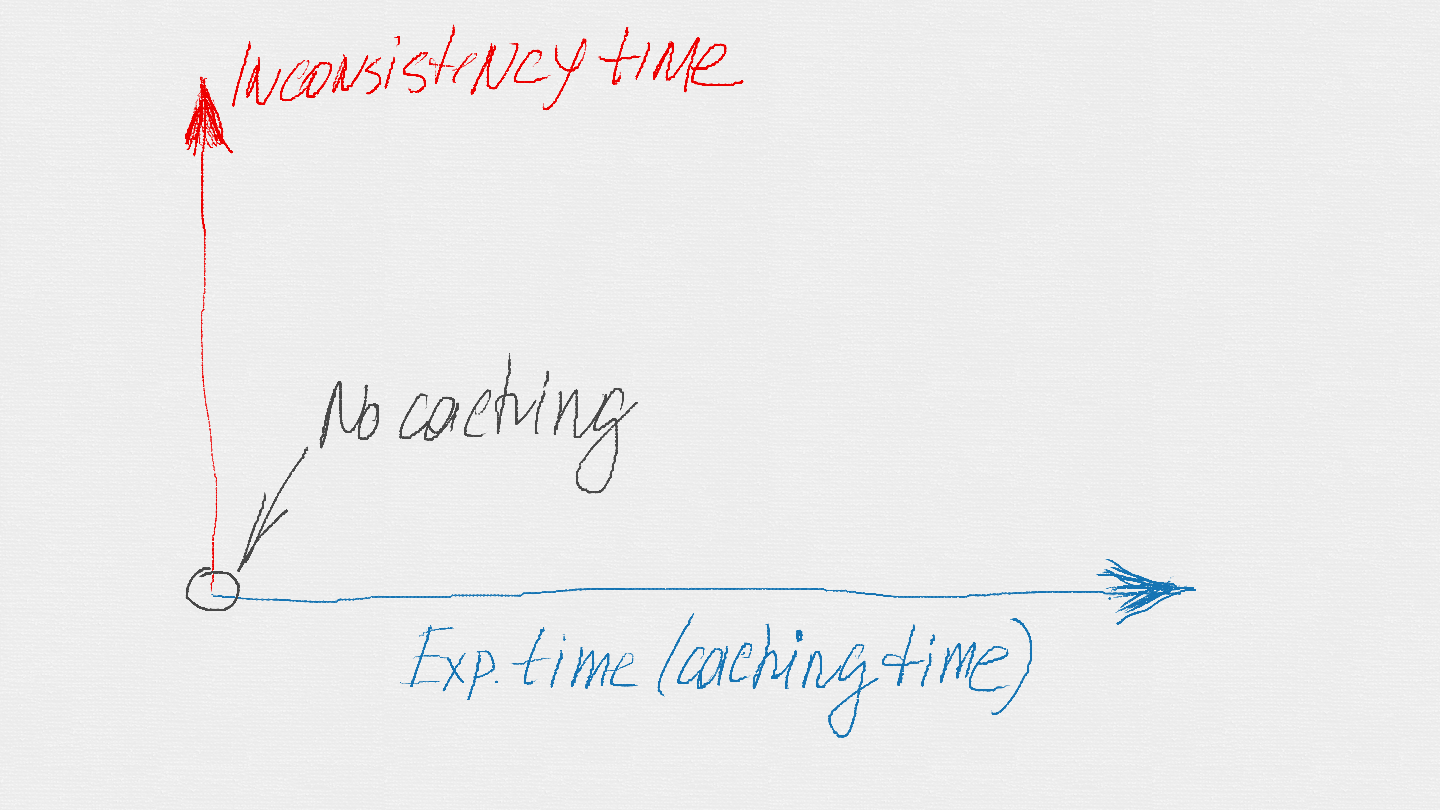 Inconsistency time
No caching
Exp. time (caching time)